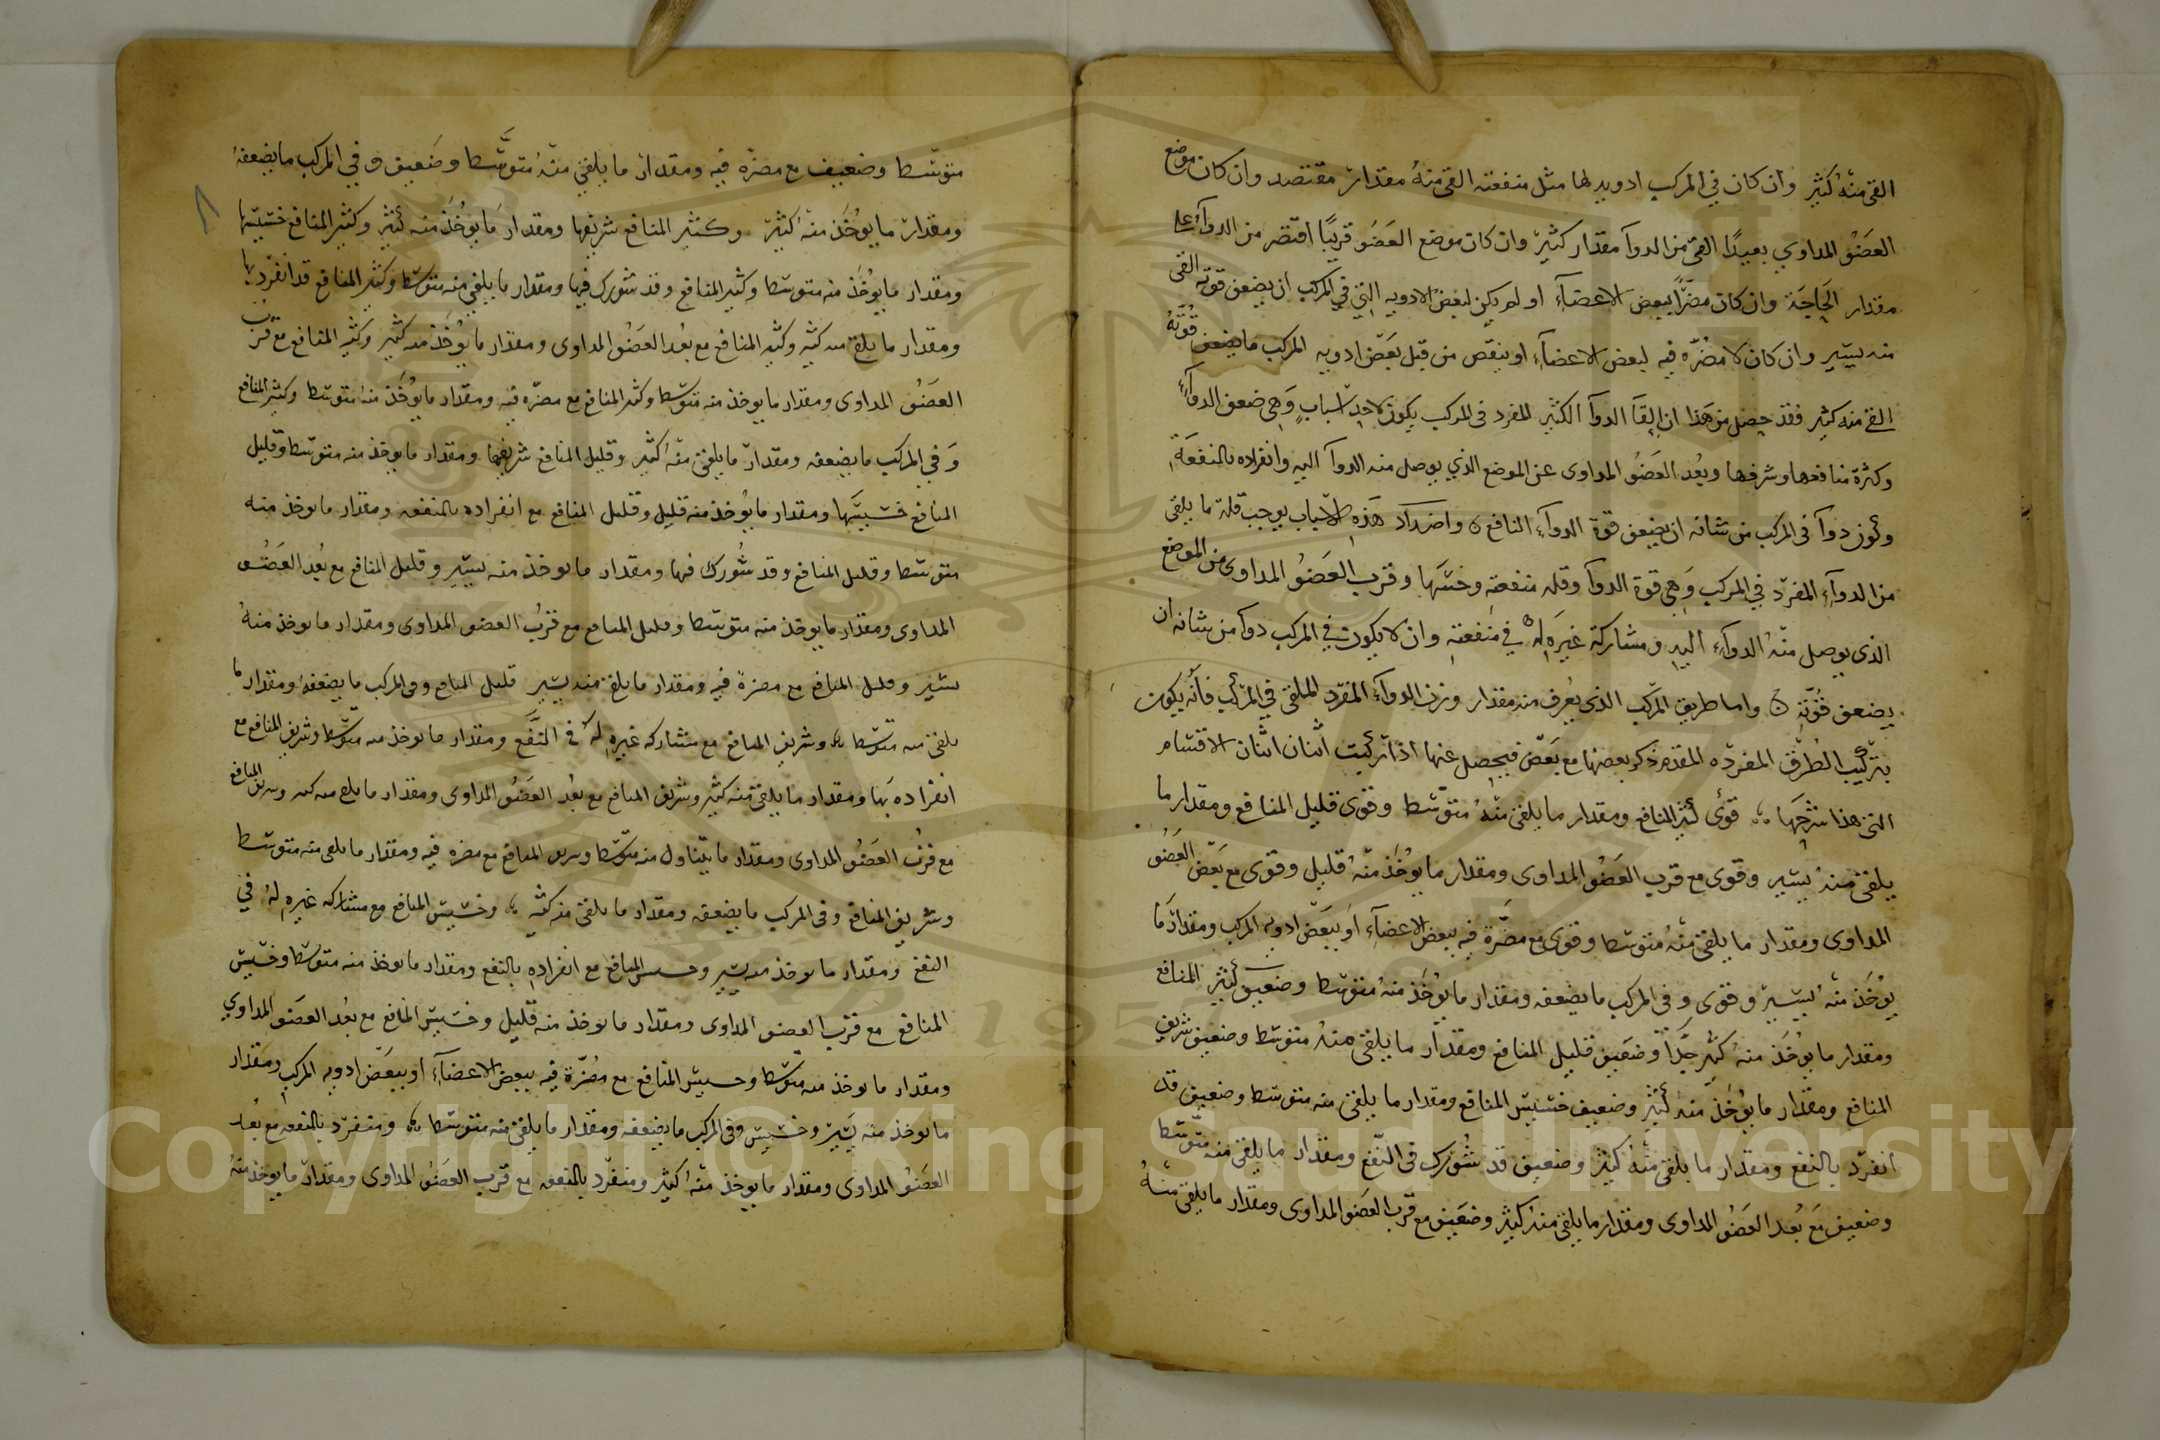 القي منه كثير وان كان في المركب ادويه لها مثل منفعته القي منه مقدار مقتصد وان كان موضع
العضو المداوي بعيدًا القي من الدوآ مقدار كثير وان كان موضع العضو قريبًا اقتصر من الدوآء على
مقدار الحاجة وان كان مضرًّا ببعض الاعضآء او لم يكن لبعض الادويه التي في المركب ان يضعف قوته القى
منه يسير وان كان لا مضرّه فيه لبعض الاعضآء او ينقص من قبل بعض ادويه المركب ما يضعف قوّته
القي منه كثير فقد حصل من هذا ان القآ الدوآ الكثير المفرد في المركب يكون لاحد اسباب وهي ضعف الدوآء
وكثرة منافعها وشرفها وبعد العضو المداوى عن الموضع الذي يوصل منه الدوآ اليه وانفراده بالمنفعة
وكون دوآ في المركب من شانه ان يضعف قوة الدوآء النافع ه واضداد هذه الاسباب يوجب قلة ما يلقى
من الدوآء المفرد في المركب وهي قوة الدوآ وقله منفعته وخسّتها وقرب العضو المداوى من الموضع
الذي يوصل منه الدوآء اليه ومشاركة غيره له في منفعته وان لا يكون في المركب دوآ من شانه ان
يضعف قوّته ه واما طريق المركب الذي يعرف منه مقدار وزن الدوآء المفرد الملقي في المركب فانه يكون
بتركيب الطرق المفرده المقدم ذكر بعضها مع بعض فيحصل عنها اذا تركبت اثنان اثنان الاقسام
التي هذا شرحها قوى كثير المنافع ومقدار ما يلقي منه متوسّطا وقوى قليل المنافع ومقدار ما
يلقي منه يسير وقوى مع قرب العضو المداوى ومقدار ما يوخذ منه قليل وقوى مع بعض العضو
المداوى ومقدار ما يلقي منه متوسطا وقوى مع مضرة فيه ببعض الاعضآء او ببعض ادويه المركب ومقدار ما
يوخذ منه يسير وقوى وفي المركب ما يضعفه ومقدار ما يوخذ منه متوسّطا وضعيف كثير المنافع
ومقدار ما يوخذ منه كثير جدًّا وضعيف قليل المنافع ومقدار ما يلقي منه متوسطا وضعيف شريف
المنافع ومقدار ما يوخذ منه كثير وضعيف خسيس المنافع ومقدار ما يلقي منه متوسطا وضعيف قد
انفرد بالنفع ومقدار ما يلقي منه كثير وضعيف قد شورك في النفع ومقدار ما يلقي منه متوسّطا
وضعيف مع بعد العضو المداوى ومقدار ما يلقي منه كثير وضعيف مع قرب العضو المداوى ومقدار ما يلقي منه
متوسّطا وضعيف مع مضرّه فيه ومقدار ما يلقي منه متوسّطا وضعيف وفي المركب ما يضعفه
ومقدار ما يوخذ منه كثير وكثير المنافع شريفها ومقدار ما يوخذ منه كثير وكثير المنافع خسيسها
ومقدار ما يوخذ منه متوسطا وكثير المنافع وقد شورك فيها ومقدار ما يلقي منه متوسطا وكثير المنافع قد انفرد بها
ومقدار ما يلقي منه كثير وكثير المنافع مع بعد العضو المداوى ومقدار ما يوخذ منه كثير وكثير المنافع مع قرب
العضو المداوى ومقدار ما يوخذ منه متوسّطا وكثير المنافع مع مضرّه فيه ومقدار ما يوخذ منه متوسّطا وكثير المنافع
وفي المركب ما يضعفه ومقدار ما يلقي منه كثير وقليل المنافع شريفها ومقدار ما يوخذ منه متوسّطا وقليل
المنافع خسيسها ومقدار ما يوخذ منه قليل وقليل المنافع مع انفراده بالنفعه ومقدار ما يوخذ منه
متوسّطا وقليل المنافع وقد شورك فيها ومقدار ما يوخذ منه يسير وقليل المنافع مع بعد العضو
المداوى ومقدار ما يوخذ منه متوسّطا وقليل المنافع مع قرب العضو المداوى ومقدار ما يوخذ منه
يسير وقليل المنافع مع مضرة فيه ومقدار ما يلقي منه يسير قليل المنافع وفي المركب ما يضعفه ومقدار ما
يلقي منه متوسّطا وشريف المنافع مع مشاركه غيره له في النفع ومقدار ما يوخذ منه متوسّطا وشريف المنافع مع
انفراده بها ومقدار ما يلقي منه كثير وشريف المنافع مع بعد العضو المداوى ومقدار ما يلقي منه كثير وشريف المنافع
مع قرب العضو المداوى ومقدار ما يتناول منه متوسّطا وشريف المنافع مع مضره فيه ومقدار ما يلقى منه متوسّطا
وشريف المنافع وفي المركب ما يضعفه ومقدار ما يلقي منه كثير وخسيس المنافع مع مشاركه غيره له في
النفع ومقدار ما يوخذ منه يسير وخسيس المنافع مع انفراده بالنفع ومقدار ما يوخذ منه متوسّطا وخسيس
المنافع مع قرب العضو المداوى ومقدار ما يوخذ منه قليل وخسيس المنافع مع بعد العضو المداوي
ومقدار ما يوخذ منه متوسّطا وخسيس المنافع مع مضرّة فيه ببعض الاعضآء او ببعض ادويه المركب ومقدار
ما يوخذ منه يسير وخسيس وفي المركب ما يضعفه ومقدار ما يلقي منه متوسّطا ومنفرد بالنفعه مع بعد
العضو المداوى ومقدار ما يوخذ منه كثير ومنفرد بالنفعه مع قرب العضو المداوى ومقدار ما يوخذ منه
٨
Copyright © King Saud University